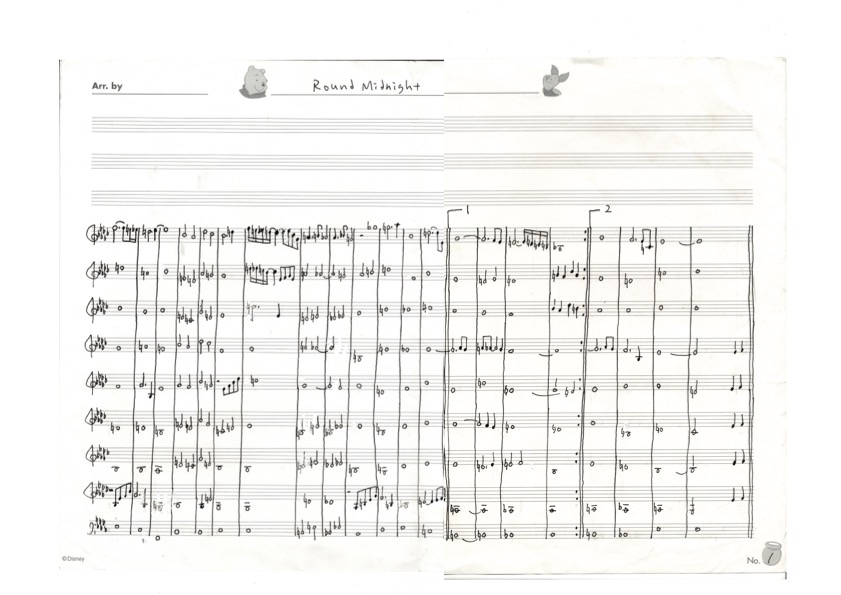 Arr. by
Round Midnight
1
2
©Disney
No. 1